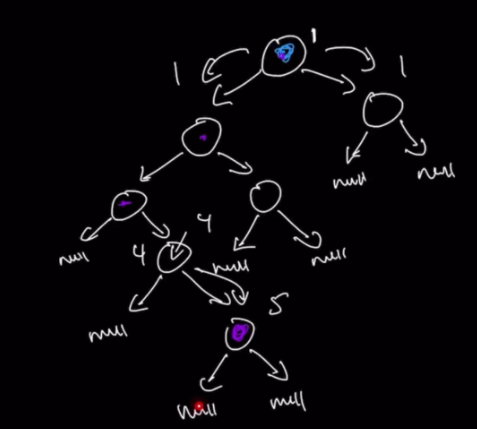 1
1
1
null
null
4
null
4
null
null
5
null
null
null